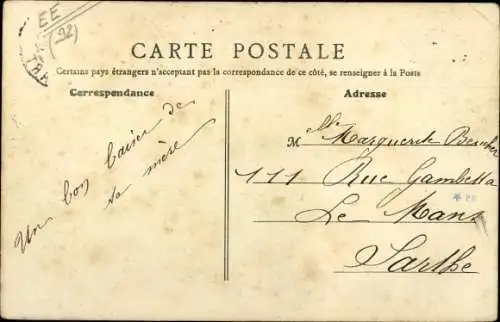 EE
(92)
CARTE POSTALE
Certains pays étrangers n'acceptant pas la correspondance de ce côté, se renseigner à la Poste
Correspondance
Un bon baiser de
ta mère
Adresse
Mlle Marguerite
111 Rue Gambetta
Le Mans
Sarthe